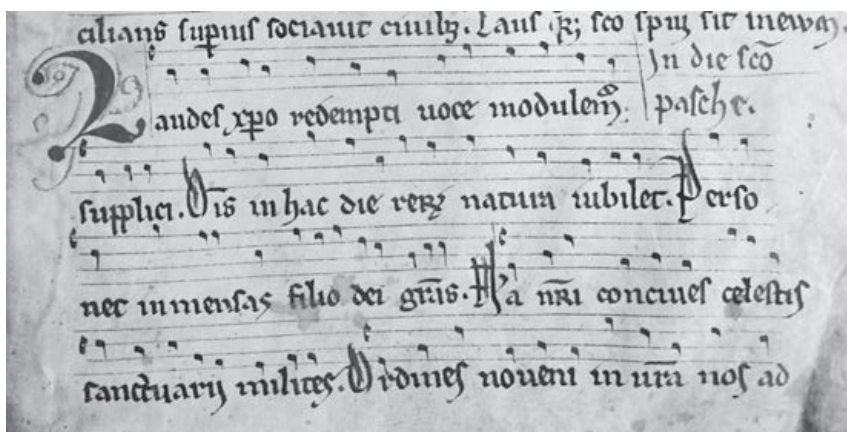 ciliant̄ suꝑius sociauit ciuib;. Laus .R; sc̄o
In die sc̄o
Laudes xp̄o redempti uoce modulem̄.
pasche.
supplici. Om̄s in hac die reꝝ natura iubilet. Perso
nec inmensas filio dei grās. Na nr̄i conciues celestis
sanctuarij milites. Ordines noueni in ur̄a nos ad